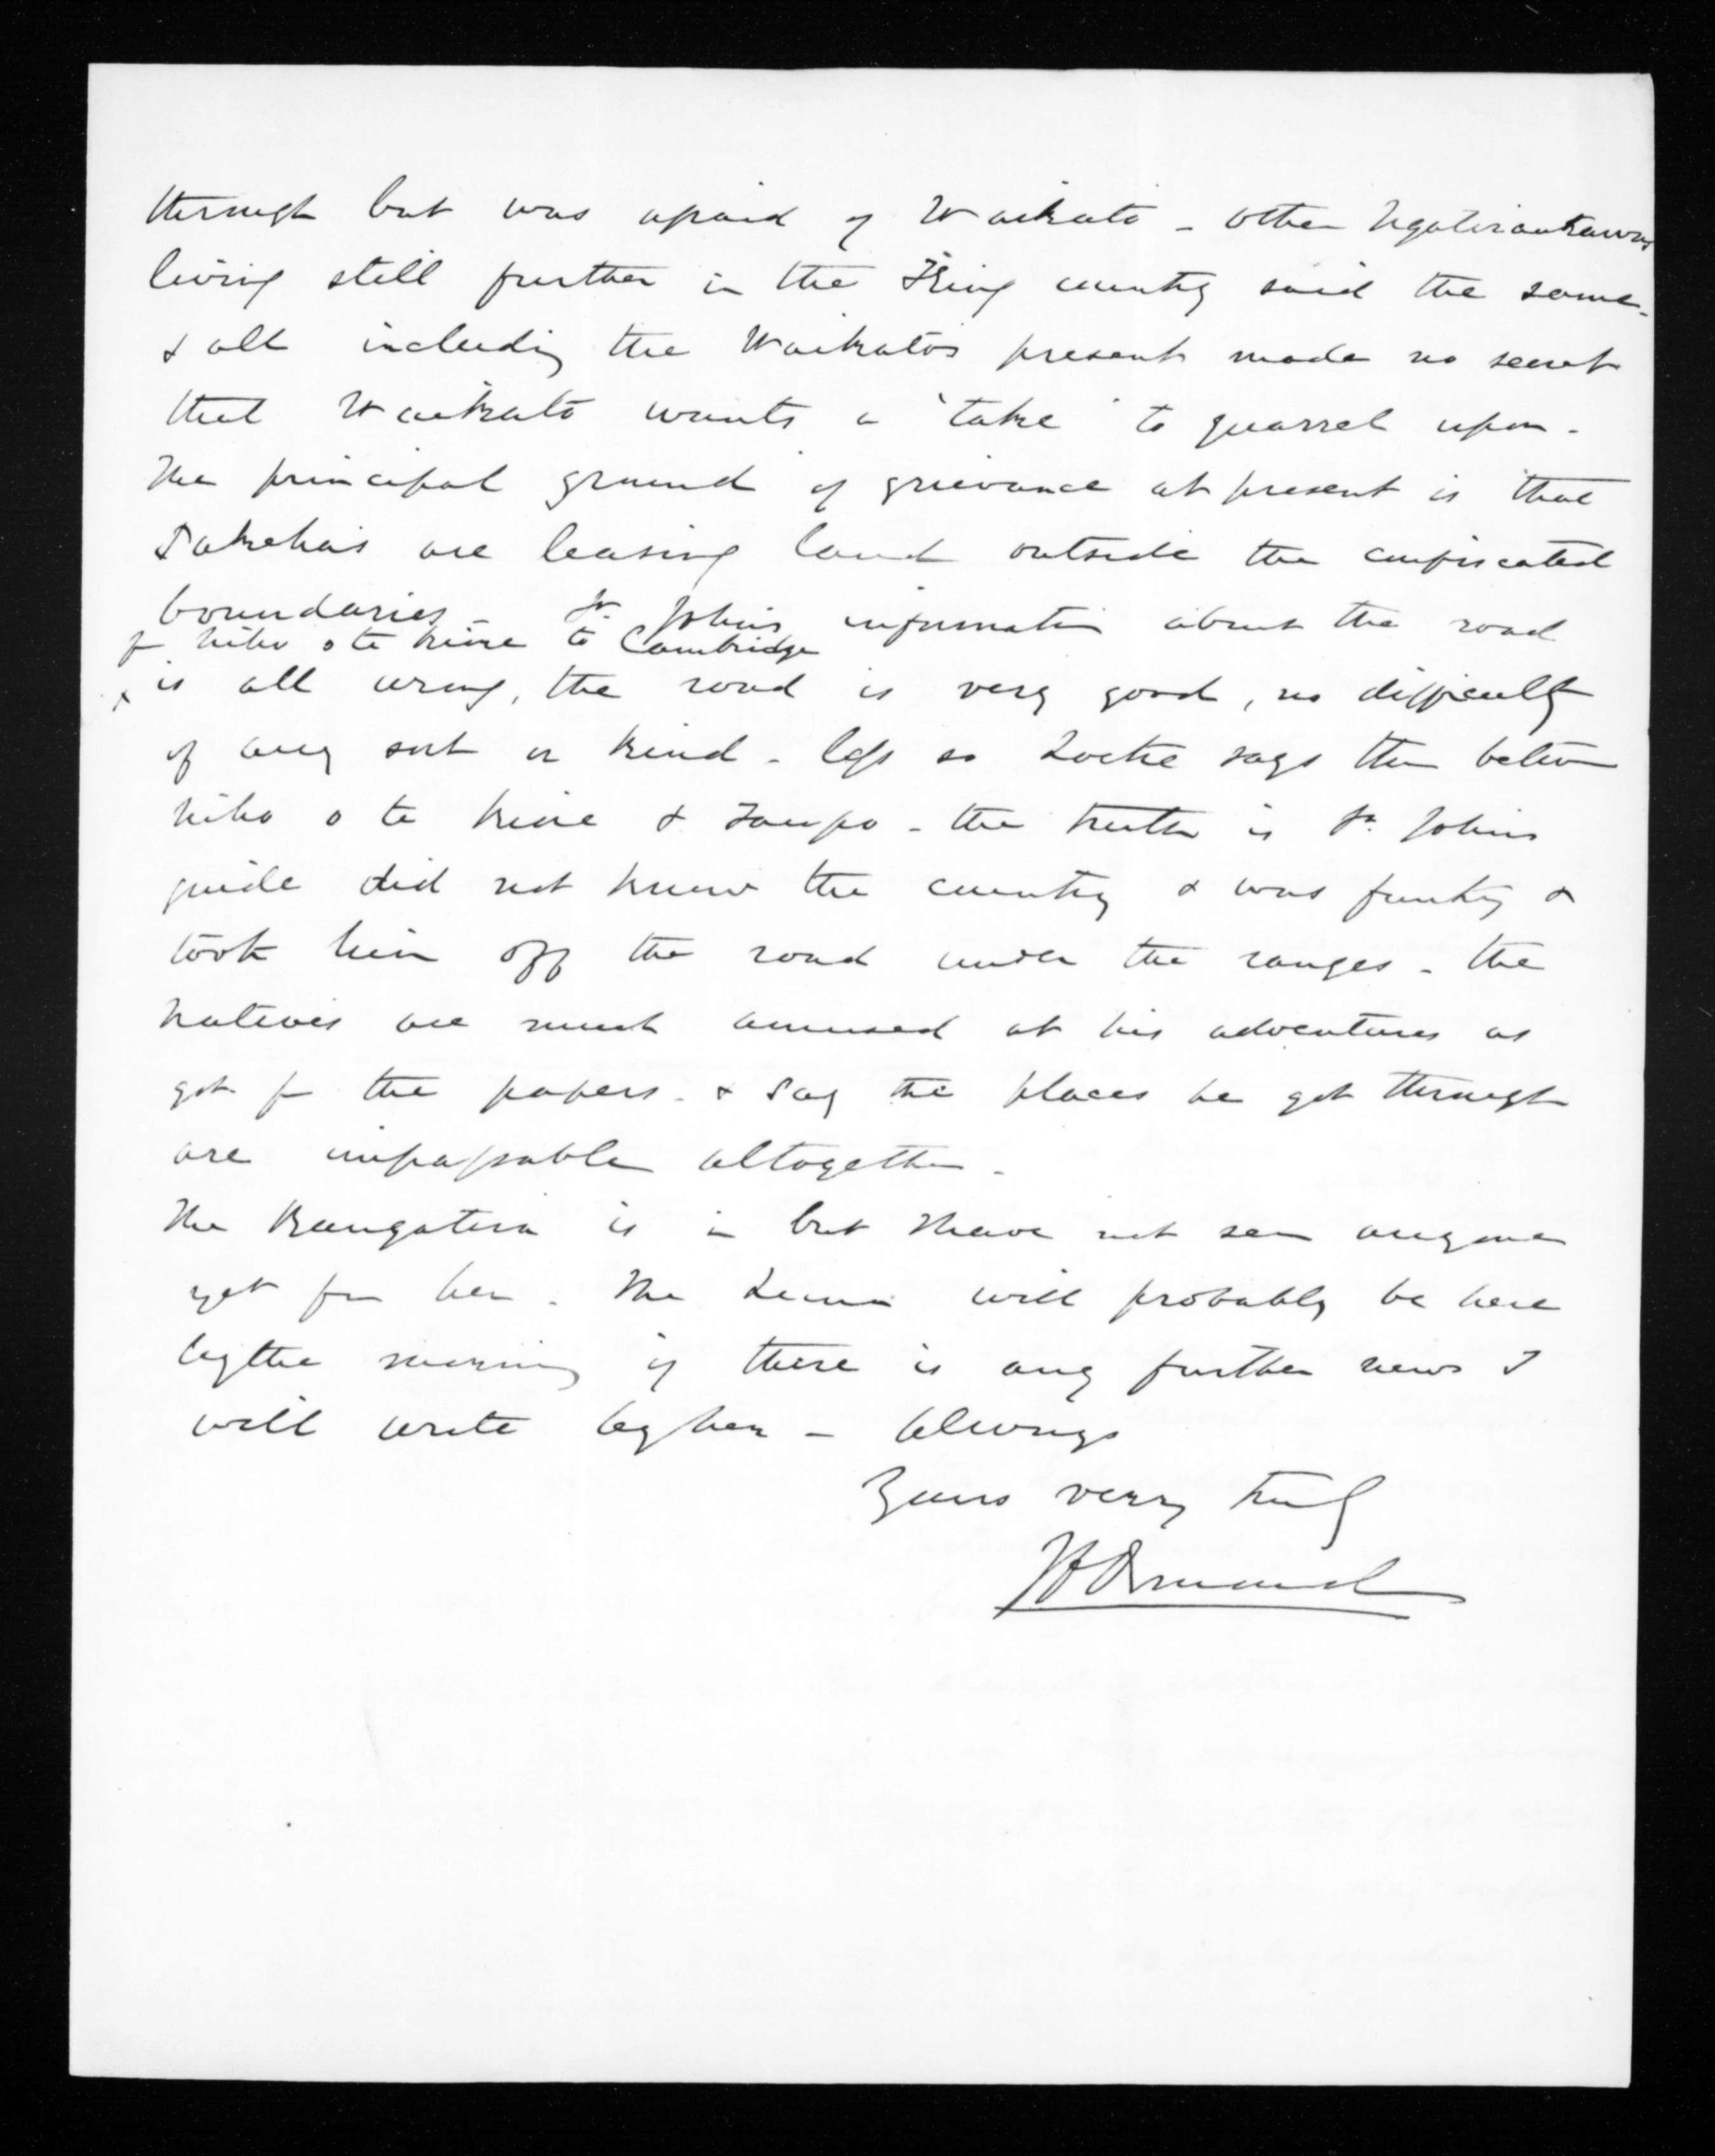 through but was afraid of Waikato - other Ngatiraukawas
living still further in the King country said the same -
& all including the Waikatos present made no secret
that Waikato wants a 'take' to quarrel upon -
The principal ground of grievance at present is that
Pakehas are leasing land outside the confiscated
boundaries - St. Johns information about the road
fm Niho o te kiore to Cambridge
x is all wrong, the road is very good, no difficulty
of any sort or kind - less so Locke says than between
Niho o te kiore & Taupo - the truth is St. Johns
guide did not know the country & was funky &
took him off the road under the ranges - the
natives are much amused at his adventures as
got fm the papers - & say the places he got through
are impassable altogether -
The Rangatira is in but I have not seen anyone
yet from her. The Luna will probably be here
by the morning if there is any further news I
will write by her - Always
Yours very truly
JD Ormond